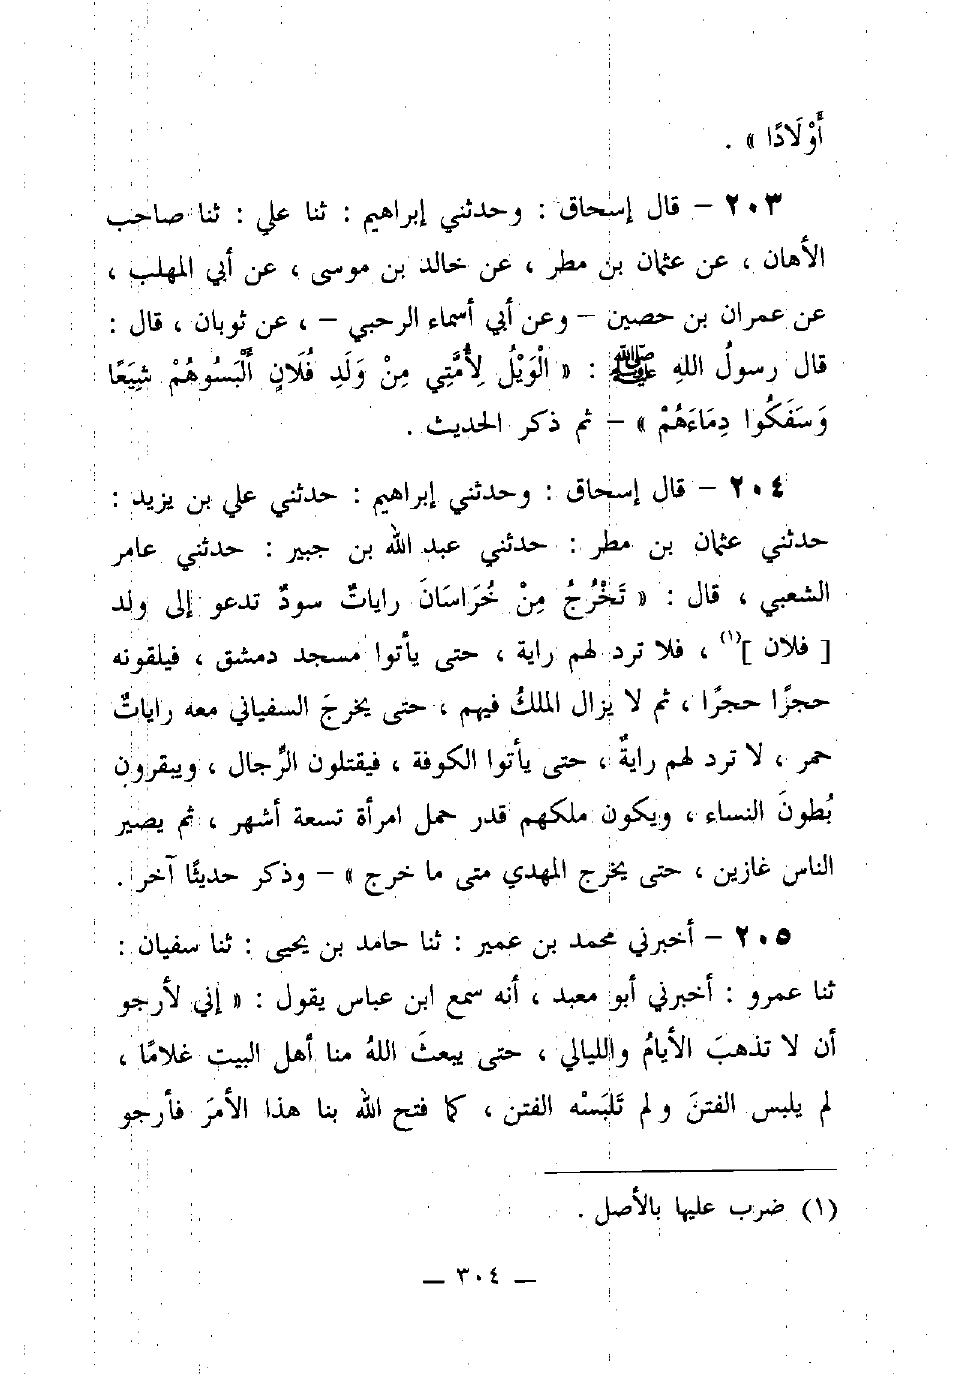 أَوْلَادًا » .
٢٠٣ – قال إسحاق : وحدثني إبراهيم : ثنا علي : ثنا صاحب
الأهان ، عن عثمان بن مطر ، عن خالد بن موسى ، عن أبي المهلب ،
عن عمران بن حصين – وعن أبي أسماء الرحبي – ، عن ثوبان ، قال :
قال رسولُ اللهِ ﷺ : « الْوَيْلُ لِأُمَّتِي مِنْ وَلَدِ فُلَانٍ أَلْبَسُوهُمْ شِيَعًا
وَسَفَكُوا دِمَاءَهُمْ » – ثم ذكر الحديث .
٢٠٤ – قال إسحاق : وحدثني إبراهيم : حدثني علي بن يزيد :
حدثني عثمان بن مطر : حدثني عبد الله بن جبير : حدثني عامر
الشعبي ، قال : « تَخْرُجُ مِنْ خُرَاسَانَ راياتٌ سودٌ تدعو إلى ولد
[ فلان ](١) ، فلا ترد لهم راية ، حتى يأتوا مسجد دمشق ، فيلقونه
حجرًا حجرًا ، ثم لا يزال الملكُ فيهم ، حتى يخرجَ السفياني معه راياتٌ
حمر ، لا ترد لهم رايةٌ ، حتى يأتوا الكوفة ، فيقتلون الرِّجال ، ويبقرون
بُطونَ النساء ، ويكون ملكهم قدر حمل امرأة تسعة أشهر ، ثم يصير
الناس غازين ، حتى يخرج المهدي متى ما خرج » – وذكر حديثًا آخر .
٢٠٥ – أخبرني محمد بن عمير : ثنا حامد بن يحيى : ثنا سفيان :
ثنا عمرو : أخبرني أبو معبد ، أنه سمع ابن عباس يقول : « إني لأرجو
أن لا تذهبَ الأيامُ والليالي ، حتى يبعثَ اللهُ منا أهل البيت غلامًا ،
لم يلبس الفتنَ ولم تَلبَسْه الفتن ، كما فتح الله بنا هذا الأمرَ فأرجو
(١) ضرب عليها بالأصل .
– ٣٠٤ –